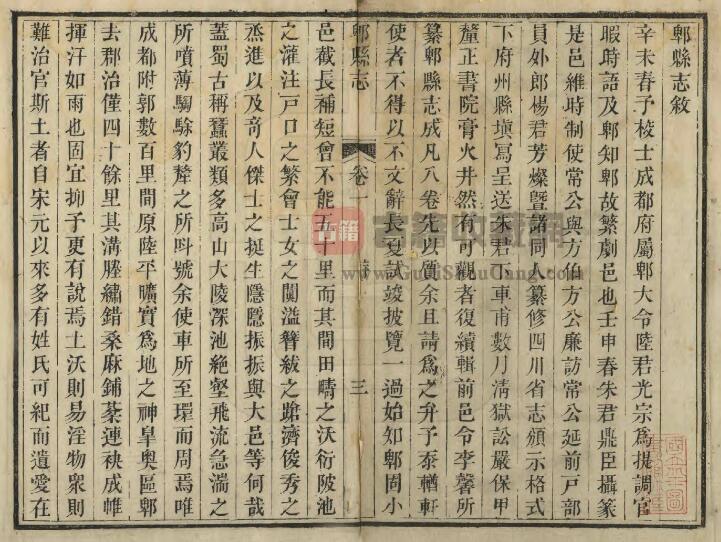 郫縣志敘
辛未春予校士成都府屬郫大令陸君光宗爲提調官
暇時語及郫知郫故繁劇邑也壬申春朱君鼎臣攝篆
是邑維時制使常公與方伯方公廉訪常公延前戸部
員外郎楊君芳燦曁諸同人纂修四川省志頒示格式
下府州縣塡寫呈送朱君下車甫數月淸獄訟嚴保甲
釐正書院膏火井然有可觀者復續輯前邑令李馨所
纂郫縣志成凡八卷先以質余且請爲之弁予忝輶軒
使者不得以不文辭長夏試竣披覽一過始知郫固小
郫縣志
卷一
三
邑截長補短曾不能五十里而其間田疇之沃衍陂池
之灌注戸口之繁會士女之闐溢簪紱之蹌濟俊秀之
烝進以及奇人傑士之挺生隱隱振振與大邑等何哉
蓋蜀古稱蠶叢類多高山大陵深池絶壑飛流急湍之
所噴薄騊駼豹犛之所嘷號余使車所至環而周焉唯
成都附郭數百里間原陸平曠實爲地之神臯奧區郫
去郡治僅四十餘里其溝塍繡錯桑麻鋪棻連袂成帷
揮汗如雨也固宜抑予更有說焉土沃則易淫物衆則
難治官斯土者自宋元以來多有姓氏可紀而遺愛在
古籍收藏網
www.GuJiShouCang.com